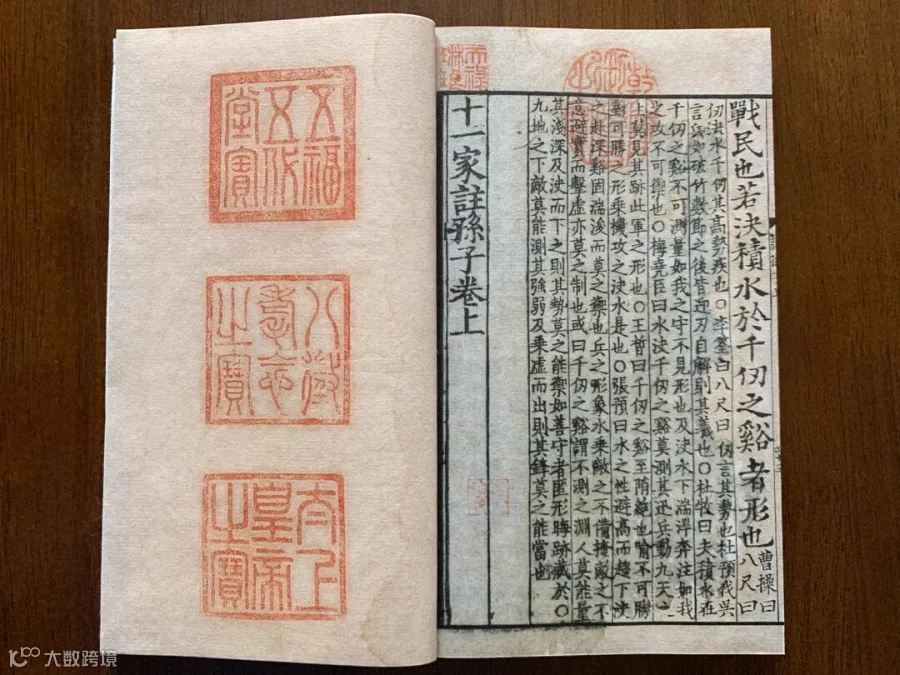 戰民也若決積水於千仞之谿者形也
曹操曰
八尺曰
仞決水千仞其高勢疾也○李筌曰八尺曰仞言其勢也杜預伐吳
言兵如破竹數節之後皆迎刃自解則其義也○杜牧曰夫積水在
千仞之谿不可測量如我之守不見形也及決水下湍浮奔注如我
之攻不可禦也○梅堯臣曰水決千仞之谿莫測其迅兵動九天之
上莫見其跡此軍之形也○王晳曰千仞之谿至陗絶也喻不可勝
對可勝之形乘機攻之決水是也○張預曰水之性避高而趨下決
之赴深谿固湍浚而莫之禦也兵之形象水乘敵之不備掩敵之不
意避實而擊虛亦莫之制也或曰千仞之谿謂不測之淵人莫能量
其淺深及決而下之則其勢莫之能禦如善守者匿形晦跡藏於○
九地之下敵莫能測其強弱及乘虛而出則其鋒莫之能當也
十一家註孫子卷上
天祿
琳琅
五福
五代
堂寶
八徵
耄念
之寶
太上
皇帝
之寶
大数跨境